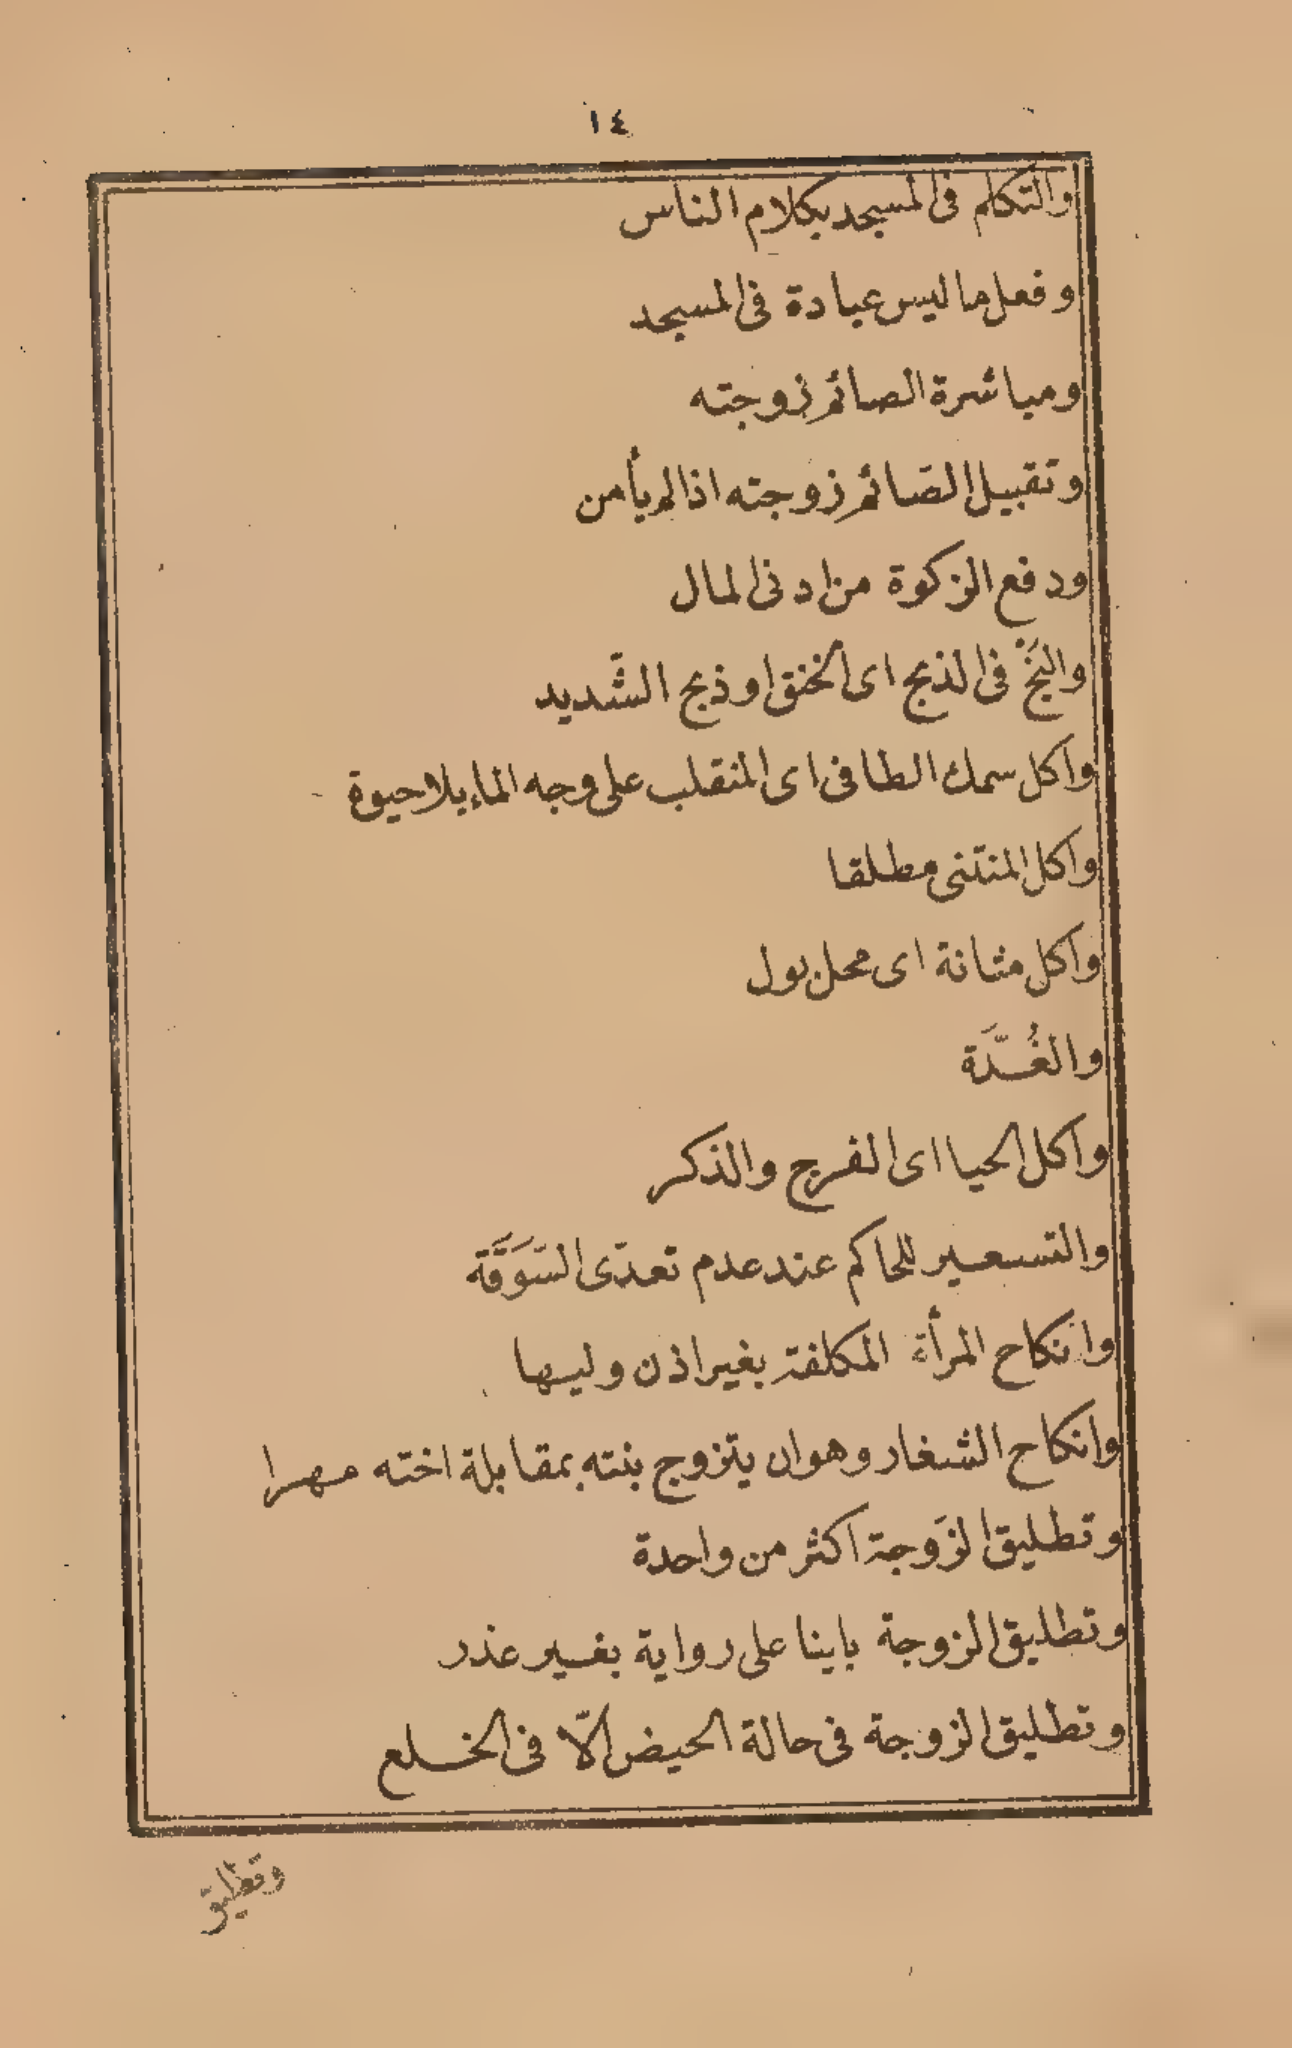 ١٤
والتكلم فى المسجد بكلام الناس
وفعل ما ليس عبادة فى المسجد
ومباشرة الصائم زوجته
وتقبيل الصّائم زوجته اذا لم يأمن
ودفع الزكوة من ادنى المال
والنَخْ فى الذبح اى الخنق او ذبح الشّديد
واكل سمك الطافى اى المنقلب على وجه الماء بلا حيوة
واكل المنتنى مطلقا
واكل مثانة اى محل بول
والغُدَّة
واكل الحيا اى الفرج والذكر
والتسعير للحاكم عند عدم تعدّى السَّوَقَة
وانكاح المرأة المكلفة بغير اذن وليها
وانكاح الشغار وهو ان يتزوج بنته بمقابلة اخته مهرا
وتطليق الزَوجة اكثر من واحدة
وتطليق الزوجة باينا على رواية بغير عذر
وتطليق الزوجة فى حالة الحيض الّا فى الخلع
وتطليق